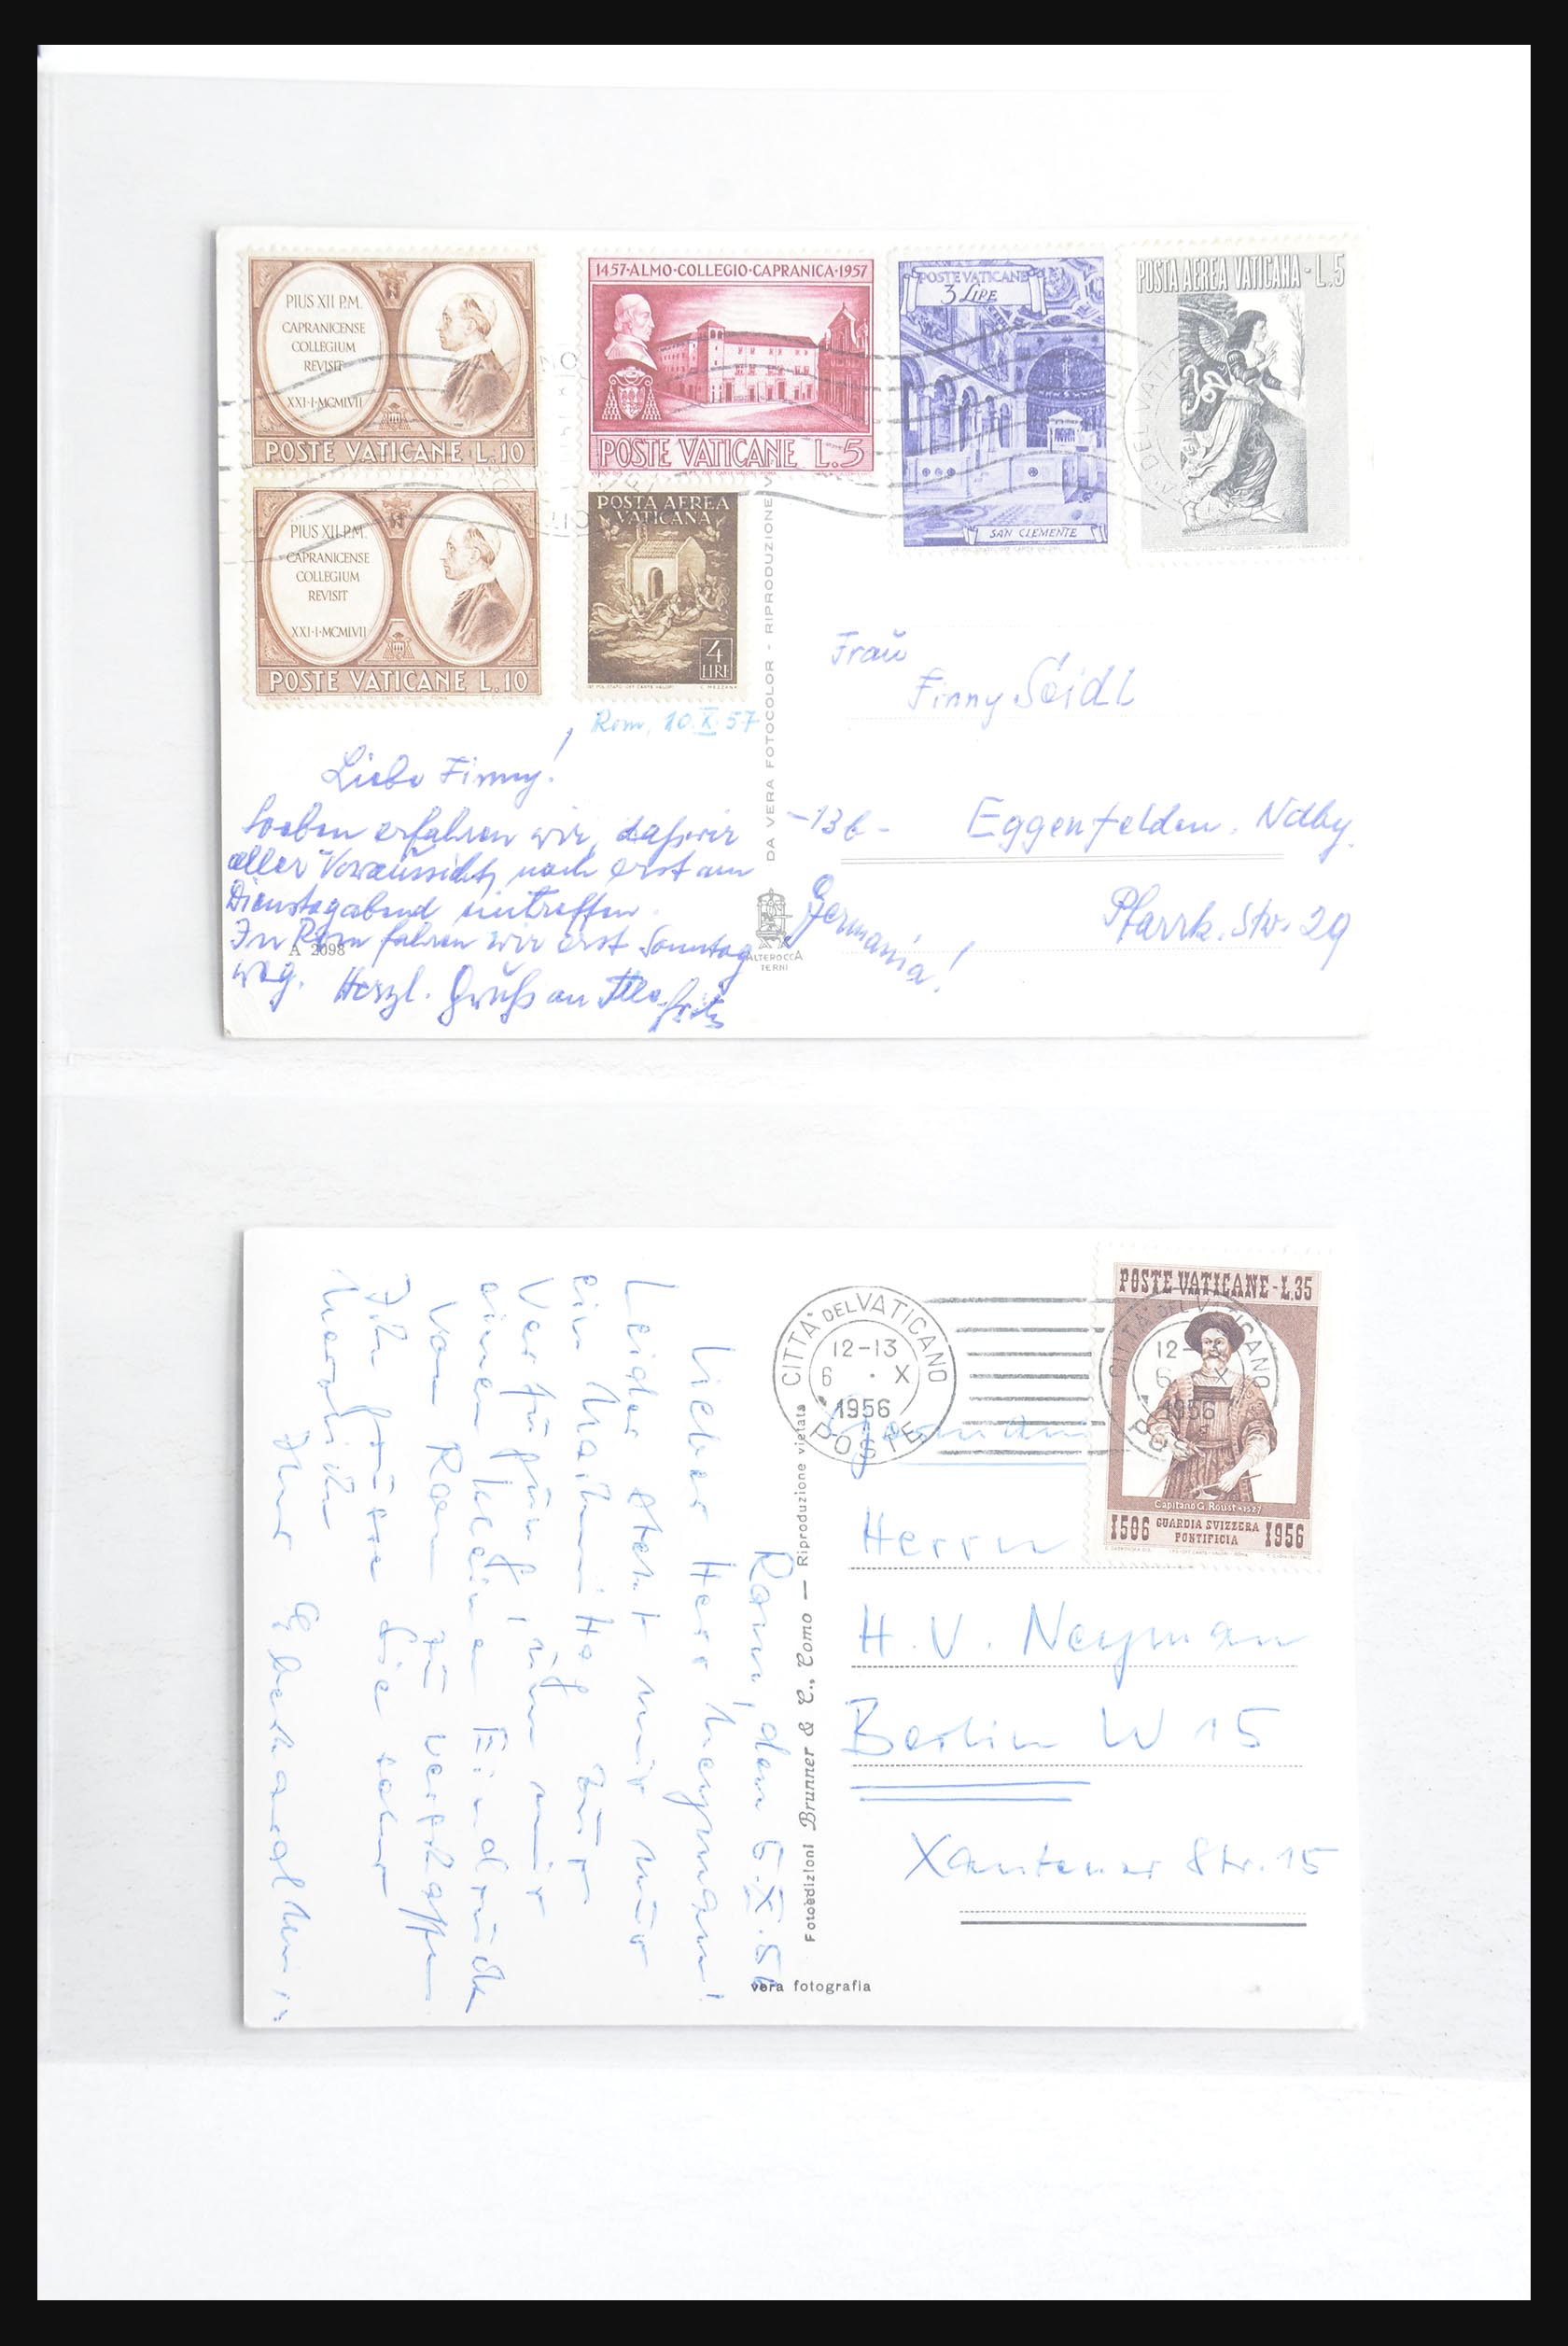 PIUS XII P.M.
CAPRANICENSE
COLLEGIUM
REVISIT
XXI·I·MCMLVII
POSTE VATICANE L.10
1457·ALMO·COLLEGIO·CAPRANICA·1957
POSTE VATICANE L.5
POSTE VATICANE
3 LIRE
SAN CLEMENTE
POSTA AEREA VATICANA·L.5
PIUS XII P.M.
CAPRANICENSE
COLLEGIUM
REVISIT
XXI·I·MCMLVII
POSTE VATICANE L.10
POSTA AEREA
VATICANA
4
LIRE
Rom, 10.X.57
Liebe Finny!
Soeben erfahren wir, daß wir
aller Voraussicht nach erst am
Dienstagabend eintreffen.
In Rom fahren wir erst Sonntag
weg. Herzl. Gruß an
A 2098
DA VERA FOTOCOLOR - RIPRODUZIONE V
ALTEROCCA
TERNI
Frau
Finny Seidl
-13b- Eggenfelden, Ndby.
Pfarrk. Str. 29
Germania!
Rom, den 6.X.56
Lieber Herr Neymann!
Leider steht mir nur
ein Nachmittag zur
Verfügung, um mir
einen kleinen Eindruck
von Rom zu verschaffen
Ich grüße Sie sehr
herzlich
Ihr
Fotoedizioni Brunner & C., Como — Riproduzione vietata
vera fotografia
CITTA' DEL VATICANO
12-13
6 · X
1956
POSTE
CITTA' DEL VATICANO
12-13
6 · X
1956
POSTE
POSTE VATICANE-L.35
Capitano G. Roust +1527
1506 GUARDIA SVIZZERA
PONTIFICIA 1956
Herrn
H. V. Neyman
Berlin W 15
Xantener Str. 15